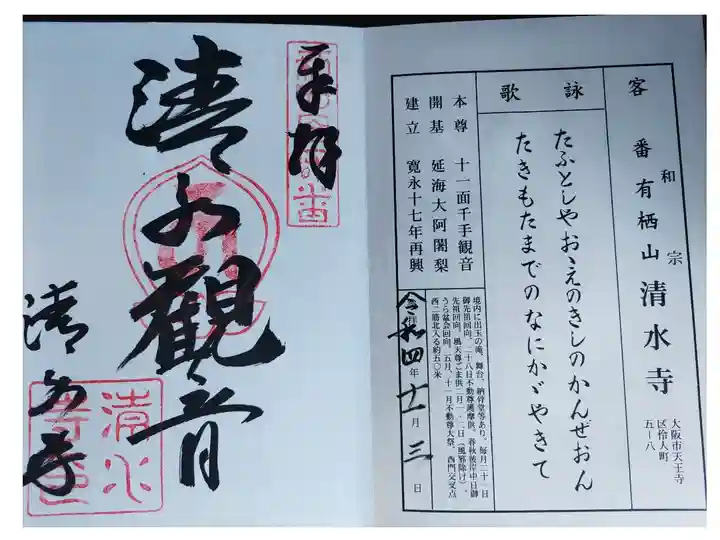 客番
和宗
有栖山 清水寺
大阪市天王寺
区伶人町
五ー八
詠歌
たふとしやおゝえのきしのかんぜおん
たきもたまでのなにかゞやきて
本尊 十一面千手観音
開基 延海大阿闍梨
建立 寛永十七年再興
境内に出玉の滝、舞台、納骨堂等あり、毎月二十一日
御先祖回向。二十八日不動尊護摩供。春秋彼岸中日御
先祖回向。風天尊ごま供二月一・二日(風邪除け)。
うら盆会回向。五月、十一月不動尊大祭。西門交叉点
西二筋北入る約五〇米
令和四年十一月三日
奉拝
清水観音
清水寺
清水
寺